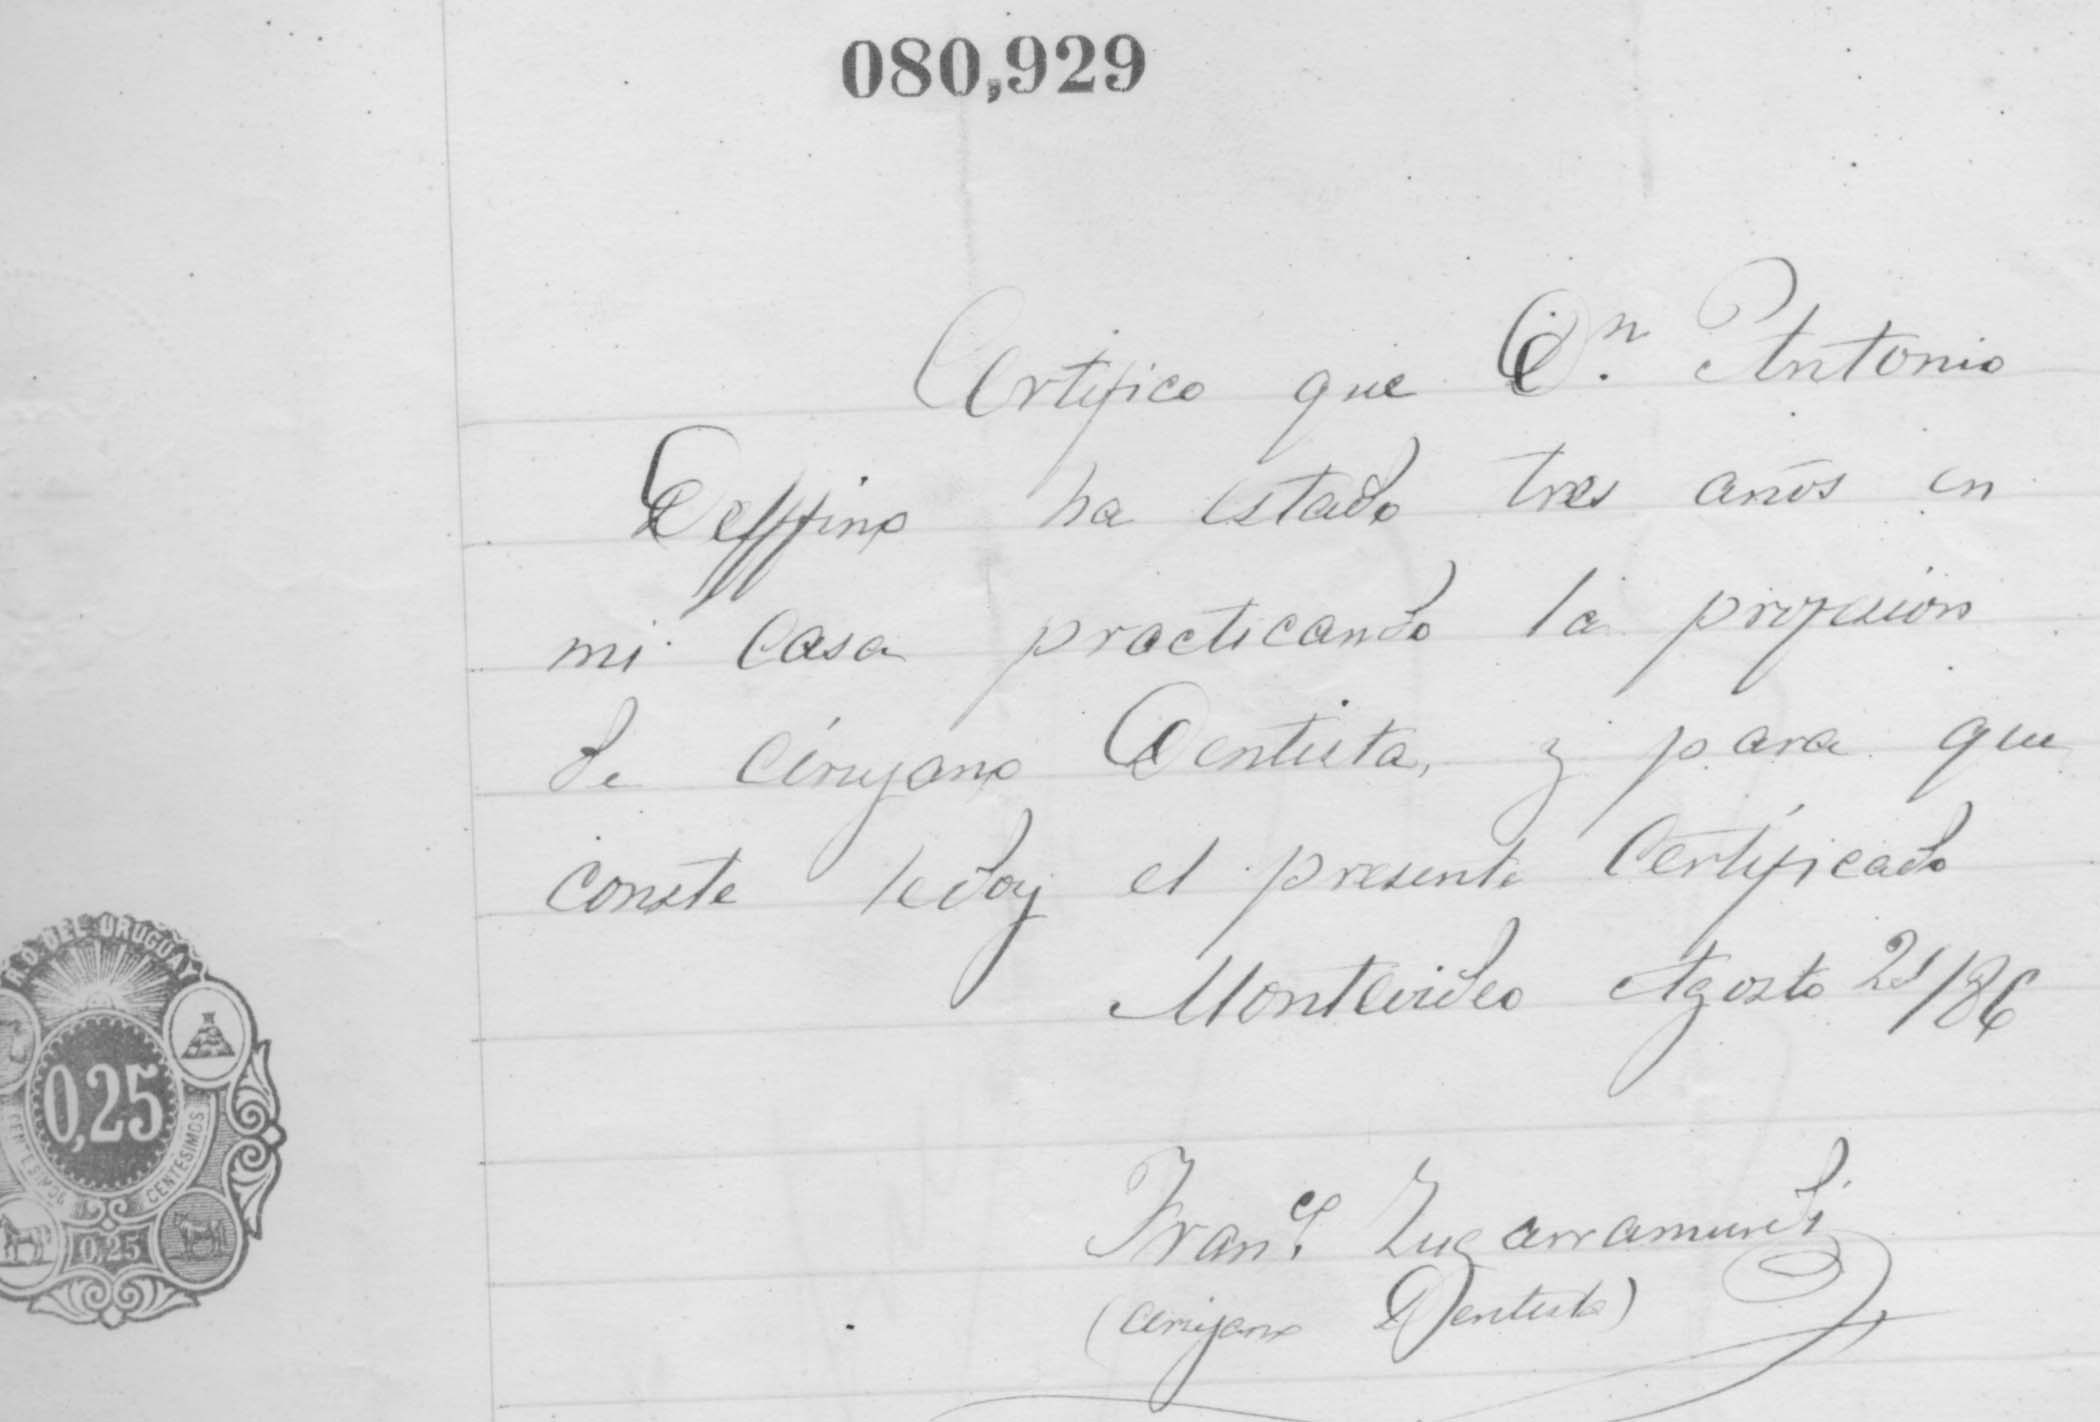 080,929
Certifico que Dn. Antonio
Deffino ha estado tres años en
mi casa practicando la profesion
de cirujano Dentista, y para que
conste le doy el presente Certificado
Montevideo Agosto 21/86
Franco. Zugarramurdi
(cirujano Dentista)
R.O. DEL URUGUAY
0,25
CENTESIMOS CENTESIMOS
0,25